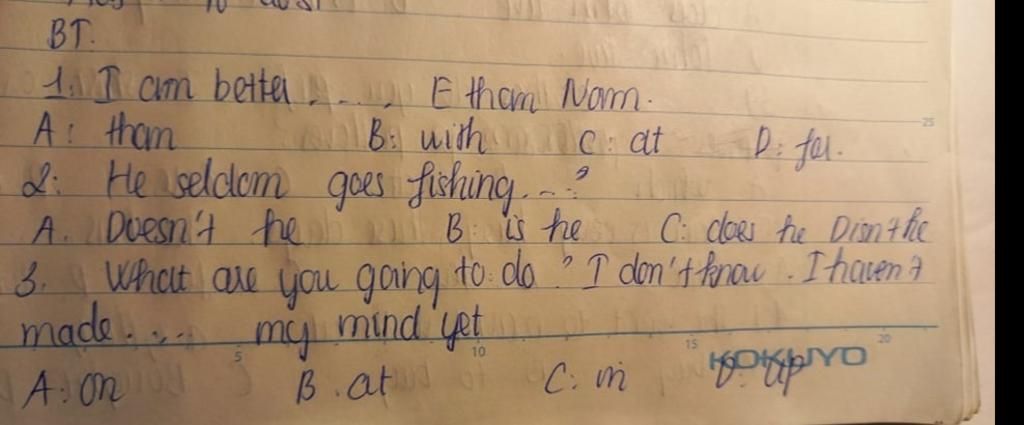 BT.
1. I am better .... E than Nam.
A: than B: with C: at D: for.
2: He seldom goes fishing...?
A. Doesn't he B: is he C: does he D isn't he
3. What are you going to do? I don't know. I haven't
made..... my mind yet
5 10 15 20 25
KOKUYO
A: on B. at C: in D: up